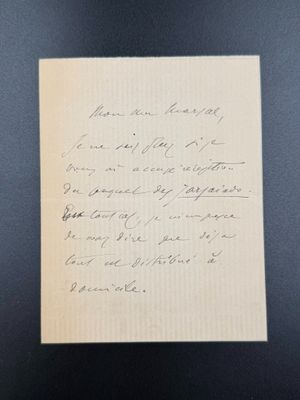 Mon cher Marsal,
Je ne sais plus si je
vous ai accusé réception
du paquet des
En tout cas, je m'empresse
de vous dire que déjà
tout est distribué à
domicile.